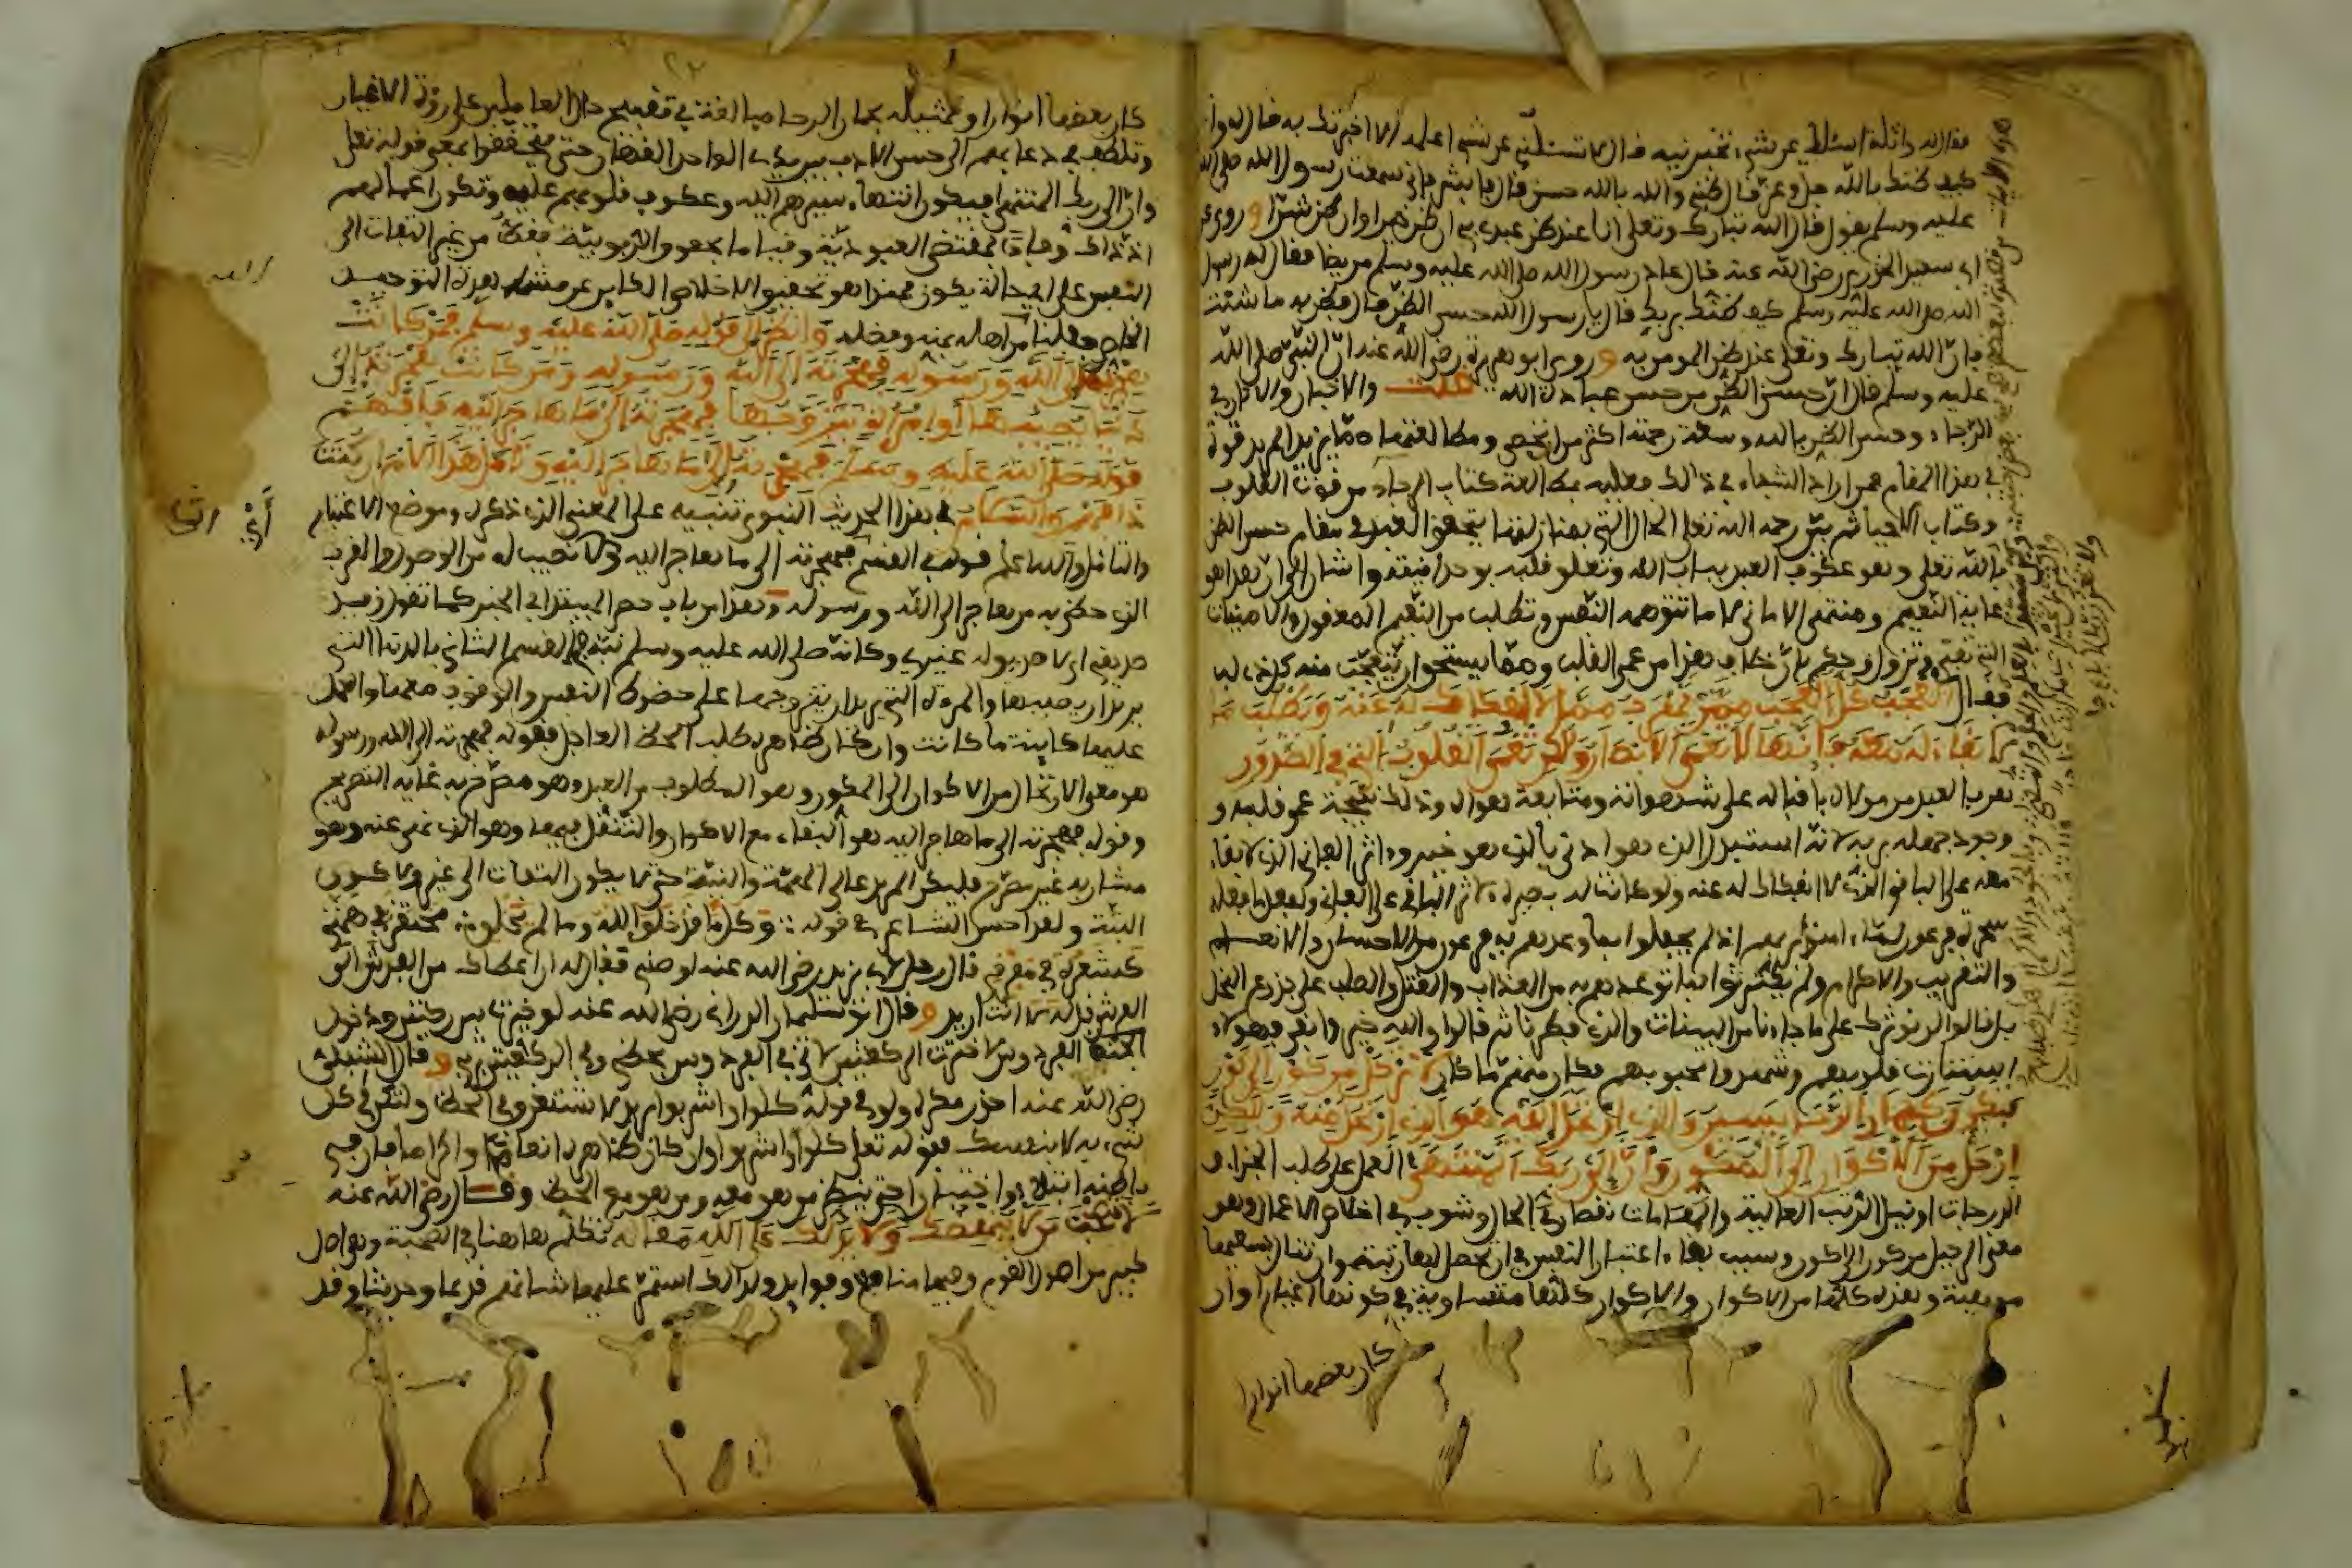 فقال له واثلة اسئلك عن شيء تخبرنيه فال لا تسئلني عن شيء اعلمه الا اخبرتك به فال له واثلة
كيف ظنك بالله جل وعز فال ظني والله بالله حسن فال فابشر فاني سمعت رسول الله صلى الله
عليه وسلم يقول فال الله تبارك وتعلى انا عند ظن عبدي بي ان ظن خيرا وان ظن شرا وروي عن
ابي سعيد الخدري رضي الله عنه فال عاد رسول الله صلى الله عليه وسلم مريضا فقال له رسول
الله صلى الله عليه وسلم كيف ظنك بربك فال يا رسول الله حسن الظن فال فظن به ما شئت
فان الله تبارك وتعلى عند ظن المومن به وروى ابو هريرة رضي الله عنه ان النبي صلى الله
عليه وسلم فال ان حسن الظن من حسن عبادة الله قلت والاخبار والاثار في
الرجاء وحسن الظن بالله وسعة رحمته اكثر من ان تحصى ومطالعتها مما يزيد المريد قوة
في هذا المقام فمن اراد الشفاء في ذالك فعليه بمطالعة كتاب الرجاء من قوت القلوب
وكتاب الاحياء ثم بين رحمه الله تعلى الحال التي بمنازلتها يتحقق العبد في مقام حسن الظن
بالله تعلى وهو عكوف العبد بباب الله وتعلق قلبه بوحدانيته واشار الى ان هذا هو
غاية النعيم ومنتهى الاماني لا ما تتوهمه النفس وتطلب من النعيم المفقود والامنيات
التي تفنى وتزول وحكم بان خلاف هذا من عمى القلب ومما يستحق ان يتعجب منه كل ذي لب
فقال العجب كل العجب ممن يهرب مما لا انفكاك له عنه ويطلب ما
لا بقاء له معه فانها لا تعمى الابصار ولكن تعمى القلوب التي في الصدور
هرب العبد من مولاه باقباله على شهواته ومتابعة هواه وذلك نتيجة عمى قلبه و
وجود جهله بربه لانه استبدل الذي هو ادنى بالذي هو خير واثر الفاني الذي لا بقاء
معه على الباقي الذي لا انفكاك له عنه ولو كانت له بصيرة لاثر الباقي على الفاني ولفعل ما فعله
سحرة فرعون لما امنوا بربهم اذ لم يحفلوا بما وعدهم به فرعون من الاحسان والانعام
والتقريب والاكرام ولم يكترثوا بما توعدهم به من العذاب والقتل والصلب على جذوع النخل
بل فالوا لن نوثرك على ما جاءنا من البينات والذي فطرنا ثم فالوا والله خير وابقى فهولاء
استنارت قلوبهم وشهدوا محبوبهم فكان منهم ما كان لا ترحل من كون الى كون
فتكون كحمار الرحى يسير والذي ارتحل اليه هو الذي ارتحل عنه ولكن
ارحل من الاكوان الى المكون وان الى ربك المنتهى العمل على طلب الجزاء و
الدرجات او نيل الرتب العالية والمقامات نقصان في الحال وشوب في اخلاص الاعمال وهو
معنى الرحيل من كون الى كون وسبب بقاء اعتبار النفس في ان يحصل لها رتبة وان تنال بسعيها
مرتبة وهذه كلها من الاكوان والاكوان كلها متساوية في كونها اغيارا وان
كان بعضها انوارا
كان بعضها انوارا وتمثيله بحمار الرحا مبالغة في تقبيح حال العاملين على روية الاغيار
وتلطف في دعائهم الى حسن الادب بين يدي الواحد القهار حتى يتحققوا بمعنى قوله تعلى
وان الى ربك المنتهى فيكون انتهاء سيرهم اليه وعكوف قلوبهم عليه وتكون اعمالهم
اذ ذاك وفاء بمقتضى العبودية وقياما بحقوق الربوبية فقط من غير التفات الى
النفس على اي حالة يكون فهذا هو تحقيق الاخلاص الكاين عن مشاهدة التوحيد
الخاص جعلنا من اهله بمنه وفضله وانظر الى قوله صلى الله عليه وسلم فمن كانت
هجرته الى الله ورسوله فهجرته الى الله ورسوله ومن كانت هجرته الى
دنيا يصيبها او امراة يتزوجها فهجرته الى ما هاجر اليه فافهم
قوله صلى الله عليه وسلم فهجرته الى ما هاجر اليه وتامل هذا الامر ان كنت
ذا فهم والسلام في هذا الحديث النبوي تنبيه على المعنى الذي ذكره وموضع الاعتبار
والتامل والله اعلم قوله في القسم فهجرته الى ما هاجر اليه ولا نصيب له من الوصول والقرب
الذي حظي به من هاجر الى الله ورسوله وهذا من باب حصر المبتدا في الخبر كما تقول زيد
صديقي اي لا صديق له غيري وكانه صلى الله عليه وسلم نبه في القسم الثاني بالدنيا التي
يريد ان يصيبها والمرءة التي يريد ان يتزوجها على حضوض النفس والوقوف معها والعمل
عليها كاينة ما كانت وان كان ظاهره طلب الحظ العاجل فقوله فهجرته الى الله ورسوله
هو معنى الارتحال من الاكوان الى المكون وهو المطلوب من العبد وهو مصرح به غاية التصريح
وقوله فهجرته الى ما هاجر اليه هو البقاء مع الاكوان والتنقل فيها وهو الذي نهي عنه وهو
مشار به غير مصرح فليكن المريد عالي الهمة والنية حتى لا يكون التفات الى غير ولا كون
البتة ولقد احسن الشاعر في قوله وكل ما قد خلق الله وما لم يخلق محتقر في همتي
كشعرة في مفرقي فال رجل لابي يزيد رضي الله عنه اوصني فقال له ان اعطاك من العرش الى
الفرش فقل له لا انت اريد وفال ابو سليمان الداراني رضي الله عنه لو خيرت بين ركعتين ودخول
الجنة الفردوس لاخترت الركعتين لاني في الفردوس بحظي وفي الركعتين بربي وفال الشبلي
رضي الله عنه احذر مكره ولو في قوله كلوا واشربوا يريد لا تستغرق في الحظ ولتكن في كل
شيء به لا بنفسك فقوله تعلى كلوا واشربوا وان كان ظاهره انعاما واكراما فان في
باطنه ابتلاء واختبارا حتى ينظر من هو معه ومن هو مع الحظ وفال رضي الله عنه
لا تصحب من لا ينهضك حاله ولا يدلك على الله مقاله تكلم هاهنا في الصحبة وهو اصل
كبير من اصول القوم وفيها منافع وفوايد ولذالك استمر عليها شانهم قديما وحديثا وقد